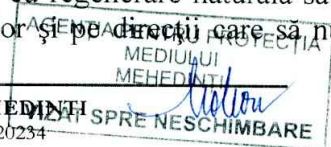 regenerare naturală
or și pe direcții care să n
AGENȚIA PENTRU PROTECȚIA
MEDIULUI
MEHEDINȚI
EDINȚI
VIZAT SPRE NESCHIMBARE
20234